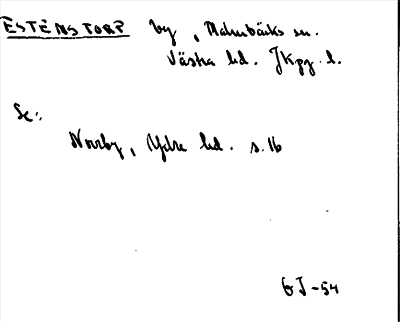 ESTENSTORP by, Malmbäcks sn.
Västra hd. Jkpg. l.
Se:
Norrby, Ydre hd. s. 16
GJ-54